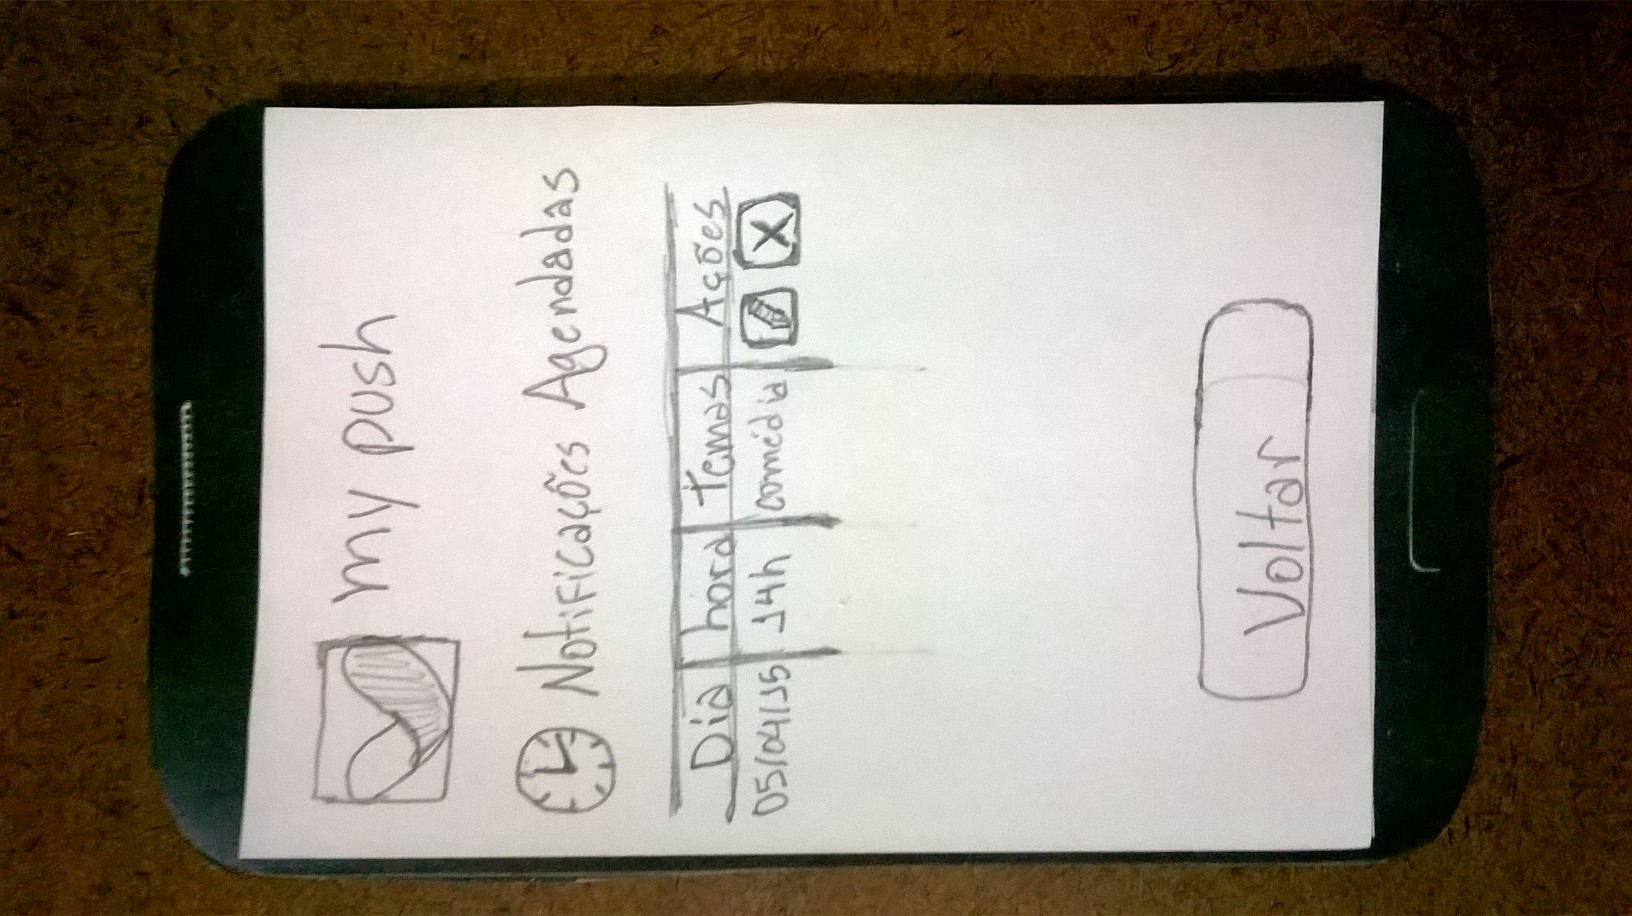 my push
Notificações Agendadas
Dia hora temas Ações
05/04/15 14h comédia X
Voltar